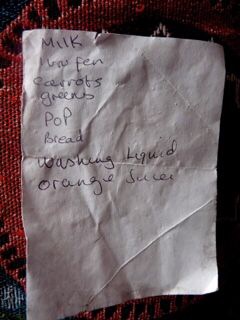 Milk
carrots
greens
Pop
Bread
Washing Liquid
orange Juice